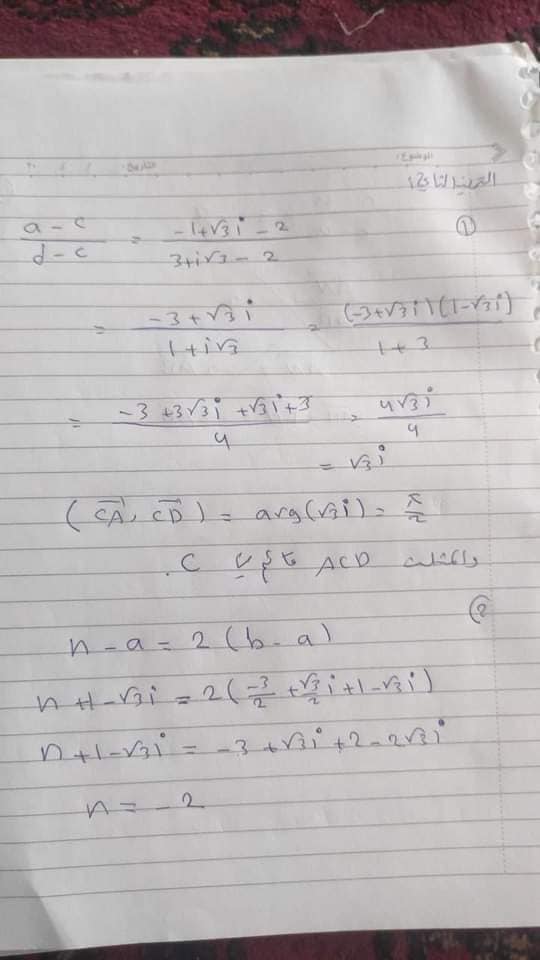 الموضوع:
التاريخ:
التمرين الثاني:
① (a - c)/(d - c) = (-1+√3 i - 2)/(3+i√3 - 2)
= (-3 + √3 i)/(1 + i√3) = (-3+√3 i)(1-√3 i)/(1 + 3)
= (-3 +3√3 i +√3 i +3)/4 = 4√3 i/4
= √3 i
(CA, CD) = arg(√3 i) = π/2
والمثلث ACD قائم C.
②
n - a = 2 (b - a)
n +1 - √3 i = 2(-3/2 + √3/2 i +1 - √3 i)
n +1 - √3 i = -3 + √3 i +2 - 2√3 i
n = -2